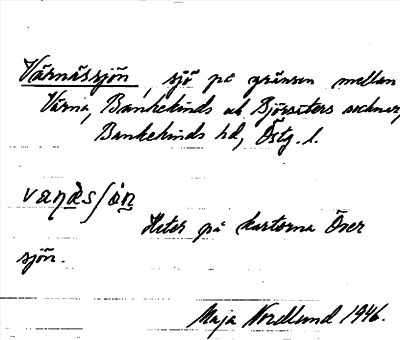 Värnässjön, sjö på gränsen mellan
Värna, Bankekinds och Björsäters socknar,
Bankekinds hd, Östg. l.
vaṇàsʃón
Heter på kartorna Över
sjön.
Maja Nordlund 1946.